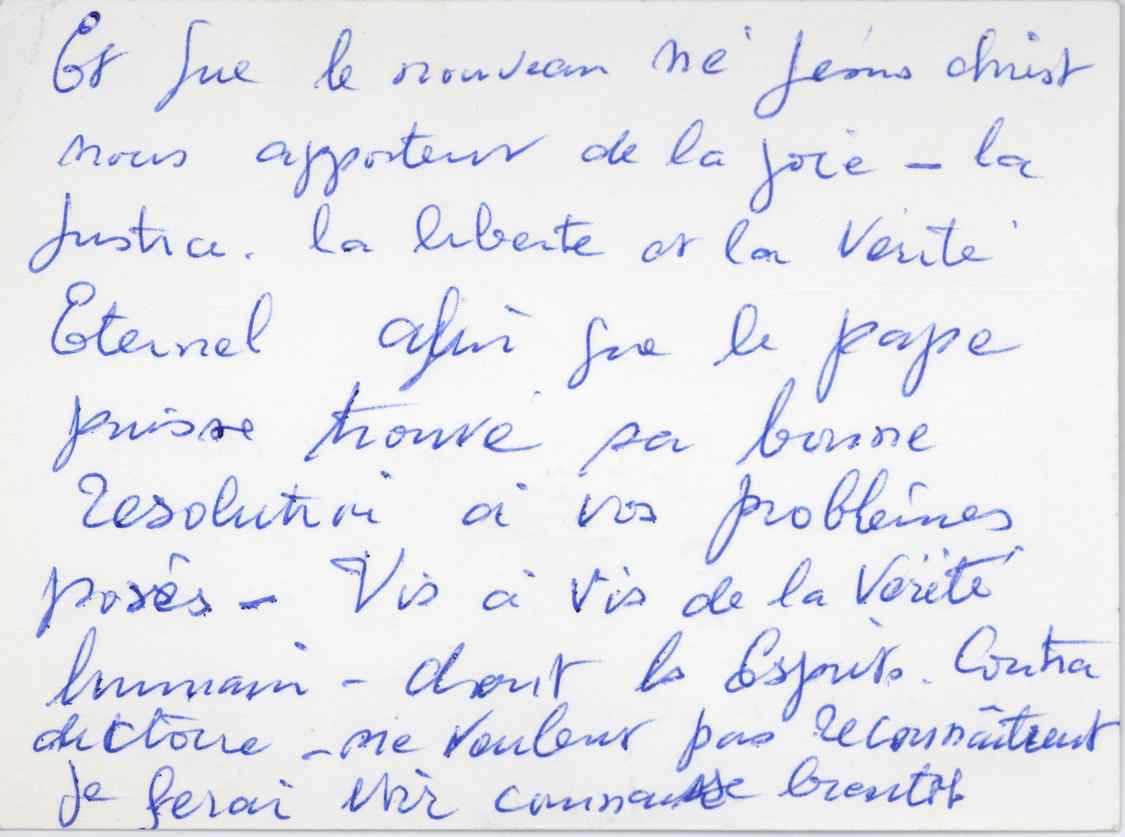 Et que le nouveau né jésus christ
nous apporteur de la joie - la
Justice. la liberte et la Vérité
Eternel afin que le pape
puisse trouvé sa bonne
Resolution à vos problèmes
posés - Vis à vis de la Vérité
humain - dront les Esprits. Contra
dictoire - ne veulent pas reconnaître
je ferai bientôt